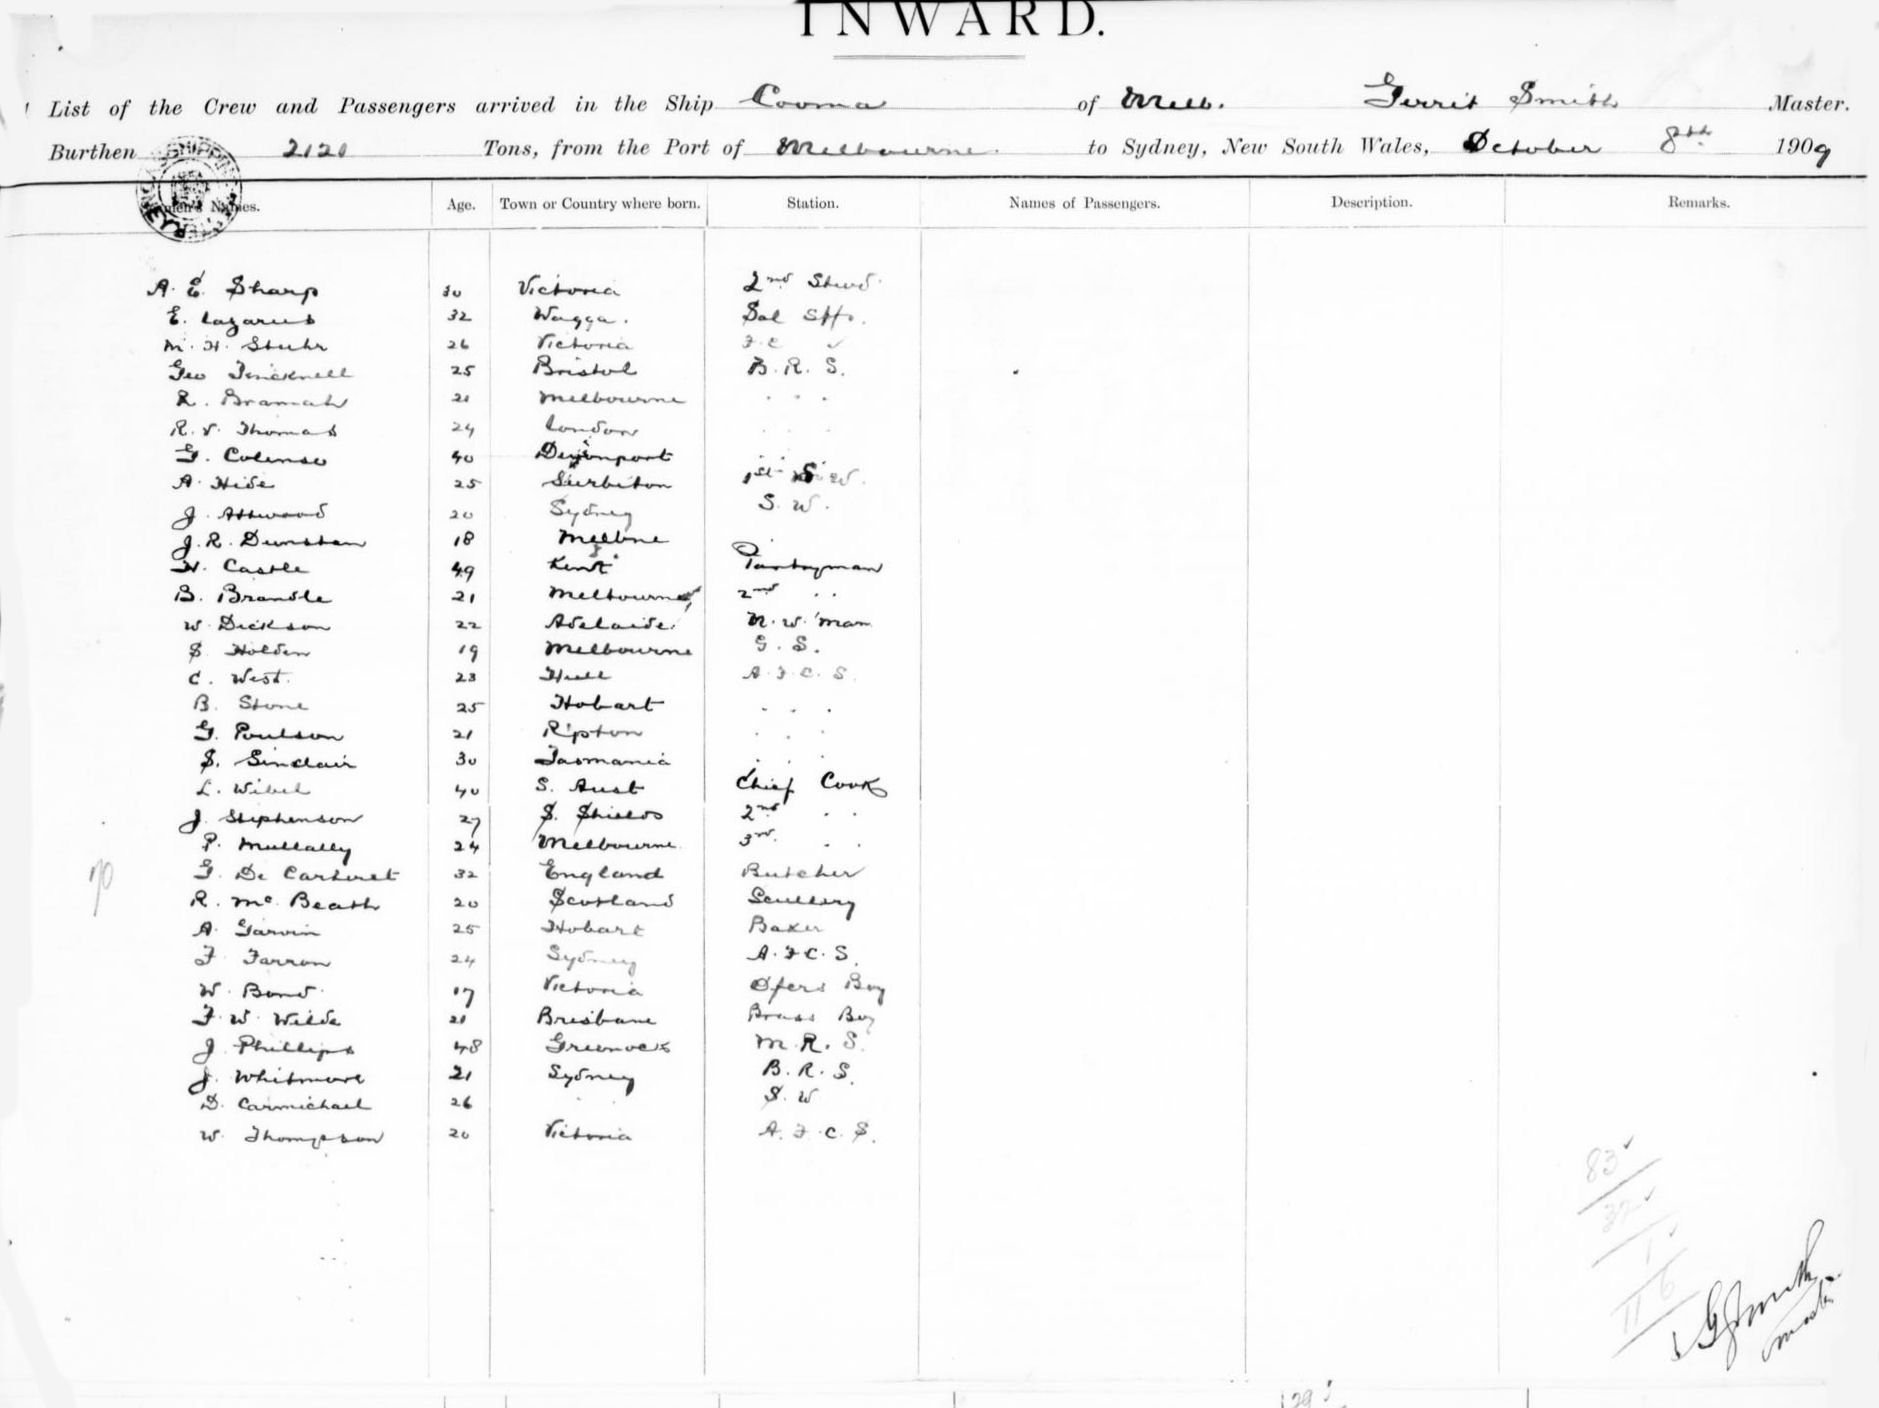 INWARD.
List of the Crew and Passengers arrived in the Ship Cooma of Melb. Gerrit Smith Master.
Burthen 2121 Tons, from the Port of Melbourne to Sydney, New South Wales, October 8th 1909
Names. Age. Town or Country where born. Station. Names of Passengers. Description. Remarks.
A. E. Sharp 30 Victoria 2nd Stwd.
E. Lazarus 32 Wagga. Sal
M. H. Stuhr 26 Victoria F C
Geo Tricknell 25 Bristol B. R. S.
R. Bramah 21 Melbourne . . .
R. V. Thomas 24 London . . .
G. Colenso 40 Devonport . . .
A. Hide 25 Surbiton 1st S. W.
J. Attwood 20 Sydney S. W.
J. R. Dunstan 18 Melbne
H. Castle 49 Kent Pantryman
B. Brandle 21 Melbourne 2nd . .
W. Dickson 22 Adelaide N. W. man
S. Holden 19 Melbourne G. S.
C. West. 23 Hull A. F. C. S.
B. Stone 25 Hobart . . .
G. Poulson 21 Ripton . . .
S. Sinclair 30 Tasmania . . .
L. Wibel 40 S. Aust Chief Cook
J. Stephenson 27 S. Shields 2nd . .
P. Mullally 24 Melbourne 3rd . .
G. De Carteret 32 England Butcher
R. Mc Beath 20 Scotland Scullery
A. Garvin 25 Hobart Baker
F. Farron 24 Sydney A. F. C. S.
W. Bond 17 Victoria Ofers Boy
F. W. Wilde 21 Brisbane Brass Boy
J. Phillips 48 Greenock M. R. S.
J. Whitmore 21 Sydney B. R. S.
D. Carmichael 26 . . S. W
W. Thompson 20 Victoria A. F. C. S.
83
32
1
116
G Smith
Master